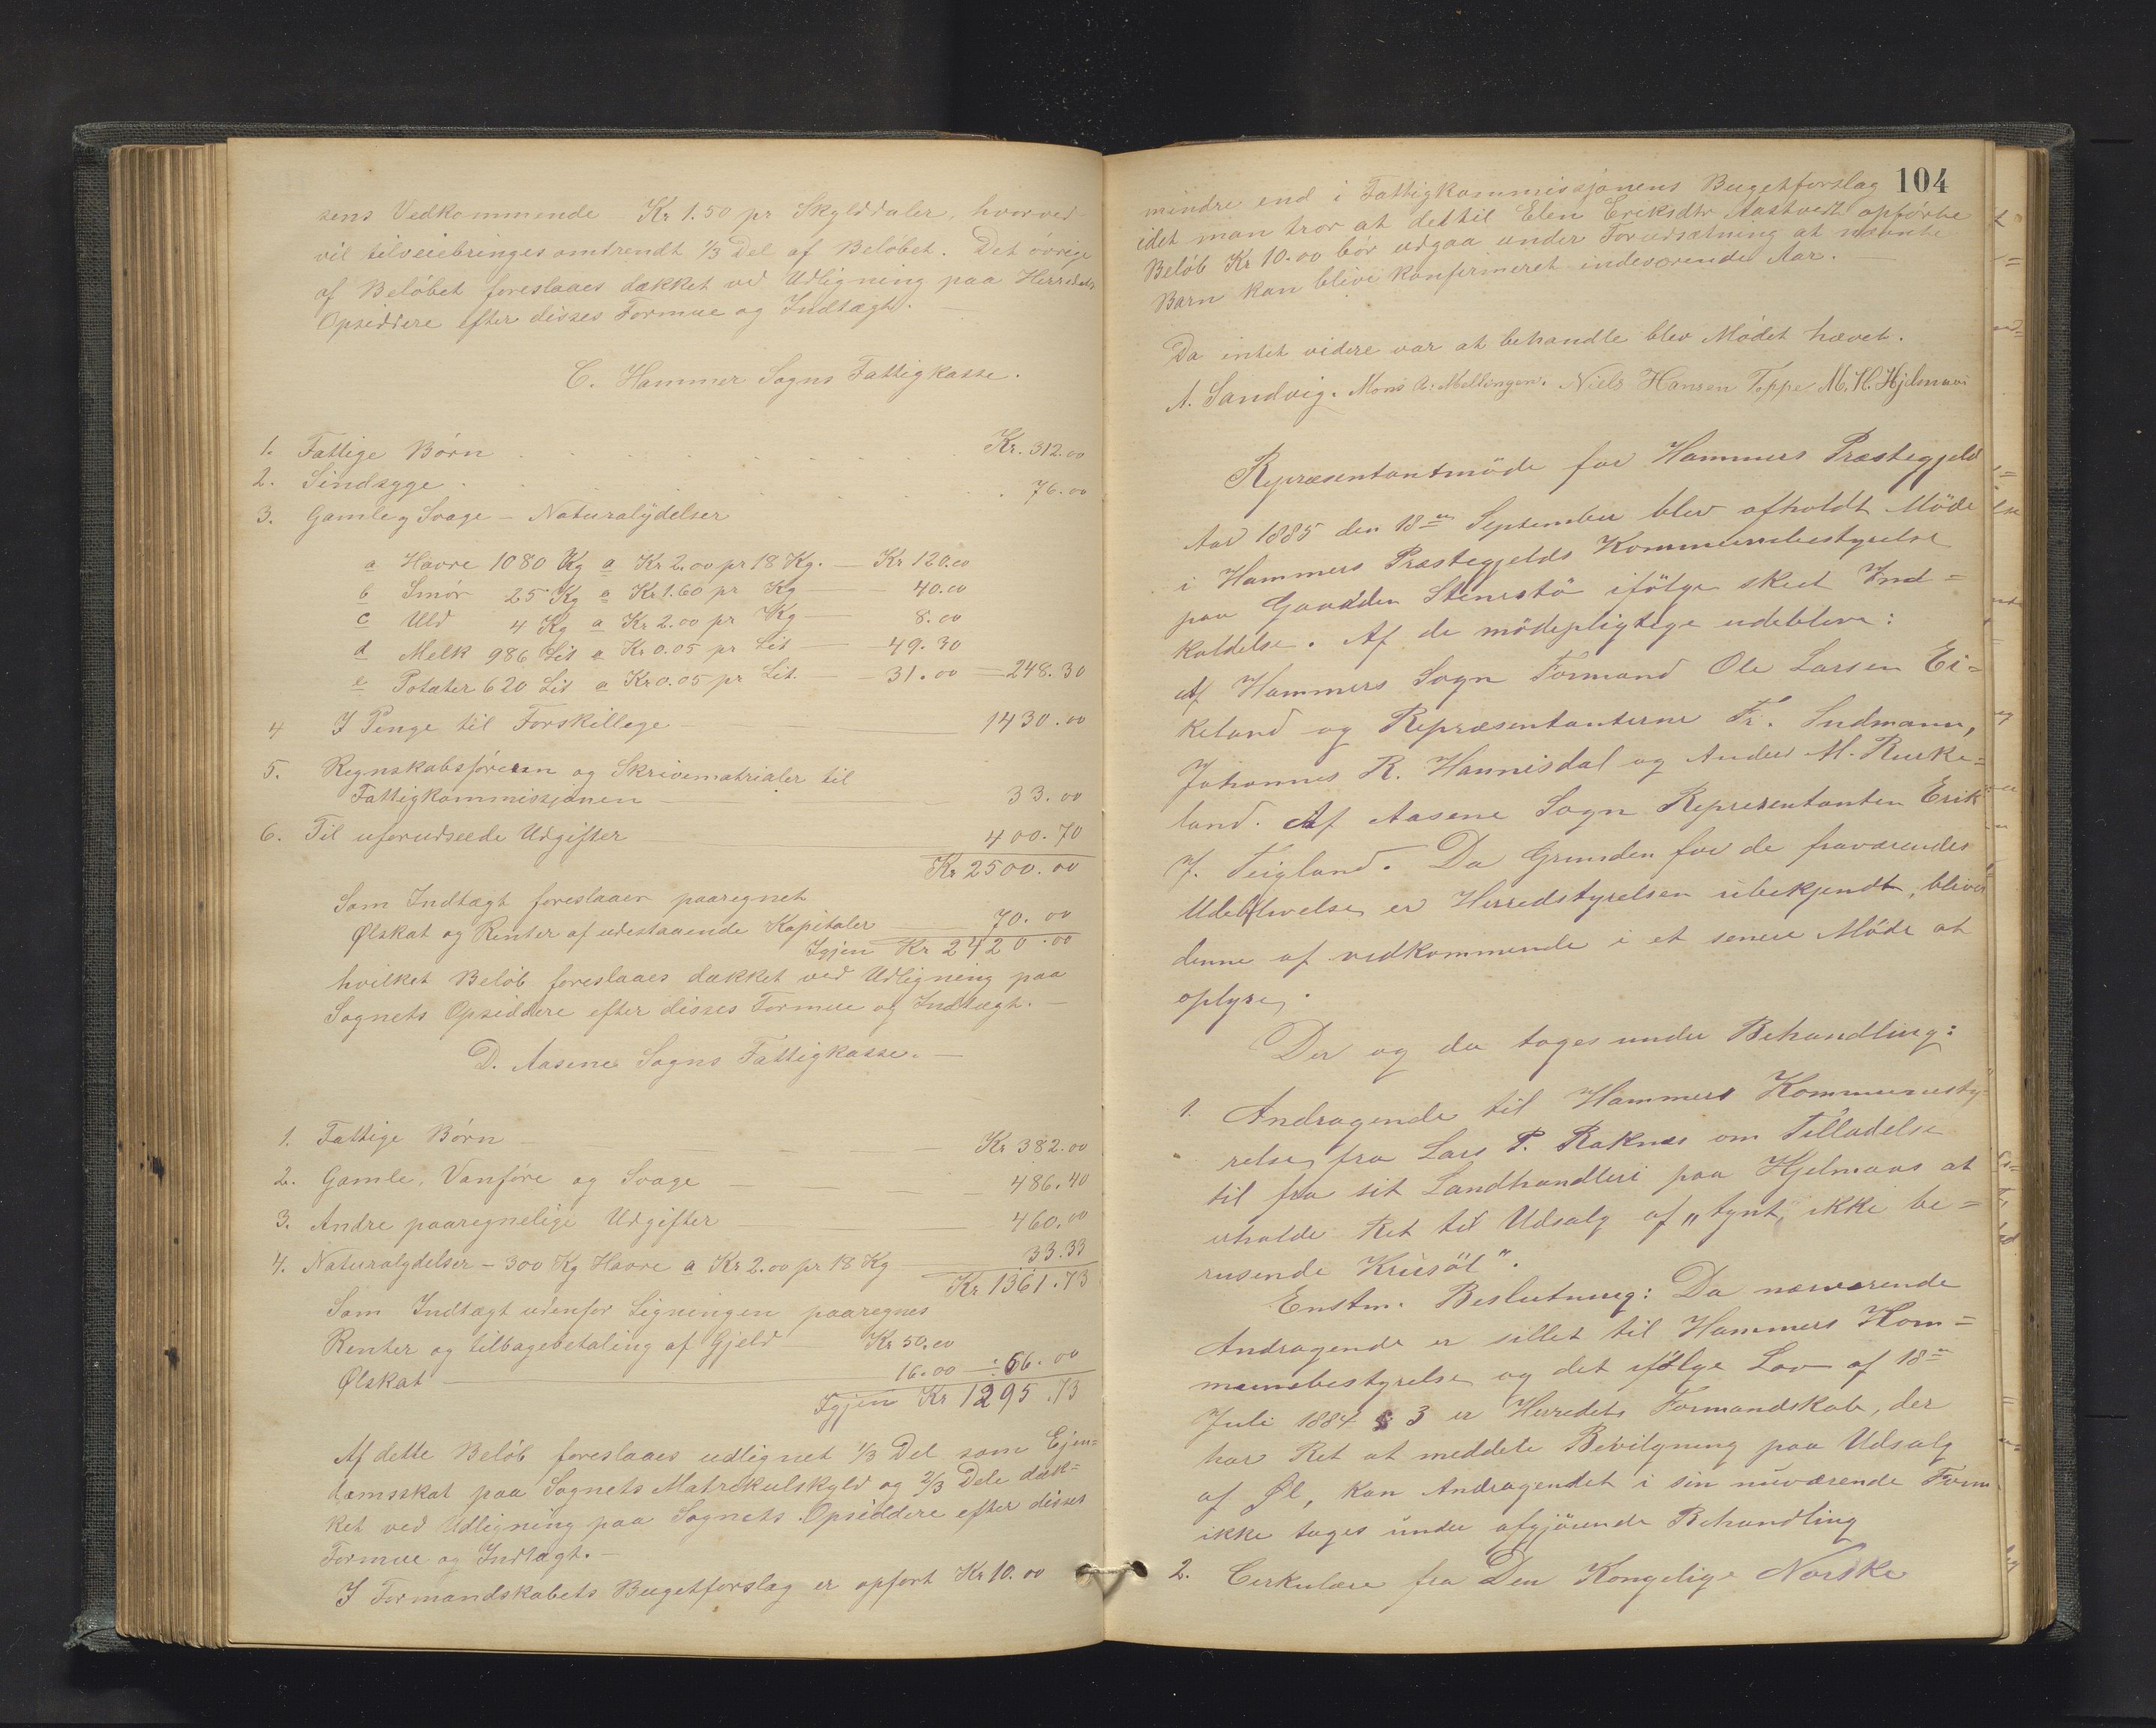 sens Vedkommende Kr 1.50 pr Skylddaler, hvorved
vil tilveiebringes omtrendt 1/3 Del af Beløbet. Det øvrige
af Beløbet foreslaaes dækket ved Udligning paa Herredets
Opsiddere efter disses Formue og Indtægt. —
C. Hammer Sogns Fattigkasse.
1. Fattige Børn . . . . . . . . Kr. 312.00
2. Sindsyge . . . . . . . . 76.00
3. Gamle og Svage — Naturalydelser
a Havre 1080 Kg a Kr 2.00 pr 18 Kg. — Kr 120.00
b Smør 25 Kg a Kr 1.60 pr Kg — 40.00
c Uld 4 Kg a Kr 2.00 pr Kg — 8.00
d Melk 986 Lit a Kr 0.05 pr Lit — 49.30
e Potæter 620 Lit a Kr 0.05 pr Lit. — 31.00 — 248.30
4 I Penge til Forskillege — 1430.00
5. Regnskabsføreren og Skrivematrialer til
Fattigkommissjonen — 33.00
6. Til uforudseede Udgifter 400.70
Kr 2500.00
Som Indtægt foreslaaes paaregnet
Ølskat og Renter af udestaaende Kapitaler 70.00
Igjen Kr 2420.00
hvilket Beløb foreslaaes dækket ved Udligning paa
Sognets Opsiddere efter disses Formue og Indtægt. —
D. Aasene Sogns Fattigkasse. —
1. Fattige Børn — Kr 382.00
2. Gamle, Vanføre og Svage — 486.40
3. Andre paaregnelige Udgifter — 460.00
4. Naturalydelser — 300 Kg Havre a Kr 2.00 pr 18 Kg 33.33
Kr 1361.73
Som Indtægt udenfor Ligningen paaregnes
Renter og tilbagebetaling af Gjeld — Kr 50.00
Ølskat — 16.00 — : 66.00
Igjen Kr 1295.73
Af dette Beløb foreslaaes udlignet 1/3 Del som Ejen=
domsskat paa Sognets Matrikulskyld og 2/3 Dele dæk=
ket ved Udligning paa Sognets Opsiddere efter disses
Formue og Indtægt. —
I Formandskabets Bugetforslag er opført Kr 10.00
104
mindre end i Fattigkommissjonens Bugetforslag
idet man tror at det til Elen Eriksdtr Aastvedt opførte
Beløb Kr 10.00 bør udgaa under Forudsætning at nævnte
Barn kan blive konfirmeret indeværende Aar. —
Da intet videre var at behandle blev Mødet hævet.
A. Sandvig. Mons A. Mellingen. Niels Hansen Toppe M. H. Hjelmaas
Repræsentantmöde for Hammers Præstegjeld
Aar 1885 den 18de September blev afholdt Möde
i Hammers Præstegjelds Kommunebestyrelse
paa Gaarden Stenestö ifölge skeet Ind=
kaldelse. Af de mödepligtige udebleve:
Af Hammers Sogn Formand Ole Larsen Ei=
keland og Repræsentanterne Fr. Sudmann,
Johannes R. Hannisdal og Anders M. Rueke=
land. Af Aasene Sogn Representanten Erik
J. Teigland. Da Grunden for de fraværendes
Udeblivelse er Herredstyrelsen ubekjendt, bliver
denne af vedkommende i et senere Möde at
oplyse.
Der og da toges under Behandling:
1. Andragende til Hammers Kommunesty-
relse fra Lars P. Raknes om Tilladelse
til fra sit Landhandleri paa Hjelmaas at
erholde Ret til Udsalg af „tynt, ikke be=
rusende Krusöl".
Enstm. Beslutning: Da nærværende
Andragende er stillet til Hammers Kom=
munebestyrelse og det ifölge Lov af 18de
Juli 1884 § 3 er Herredets Formandskab, der
har Ret at meddele Bevilgning paa Udsalg
af Öl, kan Andragendet i sin nuværende Form
ikke tages under afgjörende Behandling
2. Cirkulære fra Den Kongelige Norske